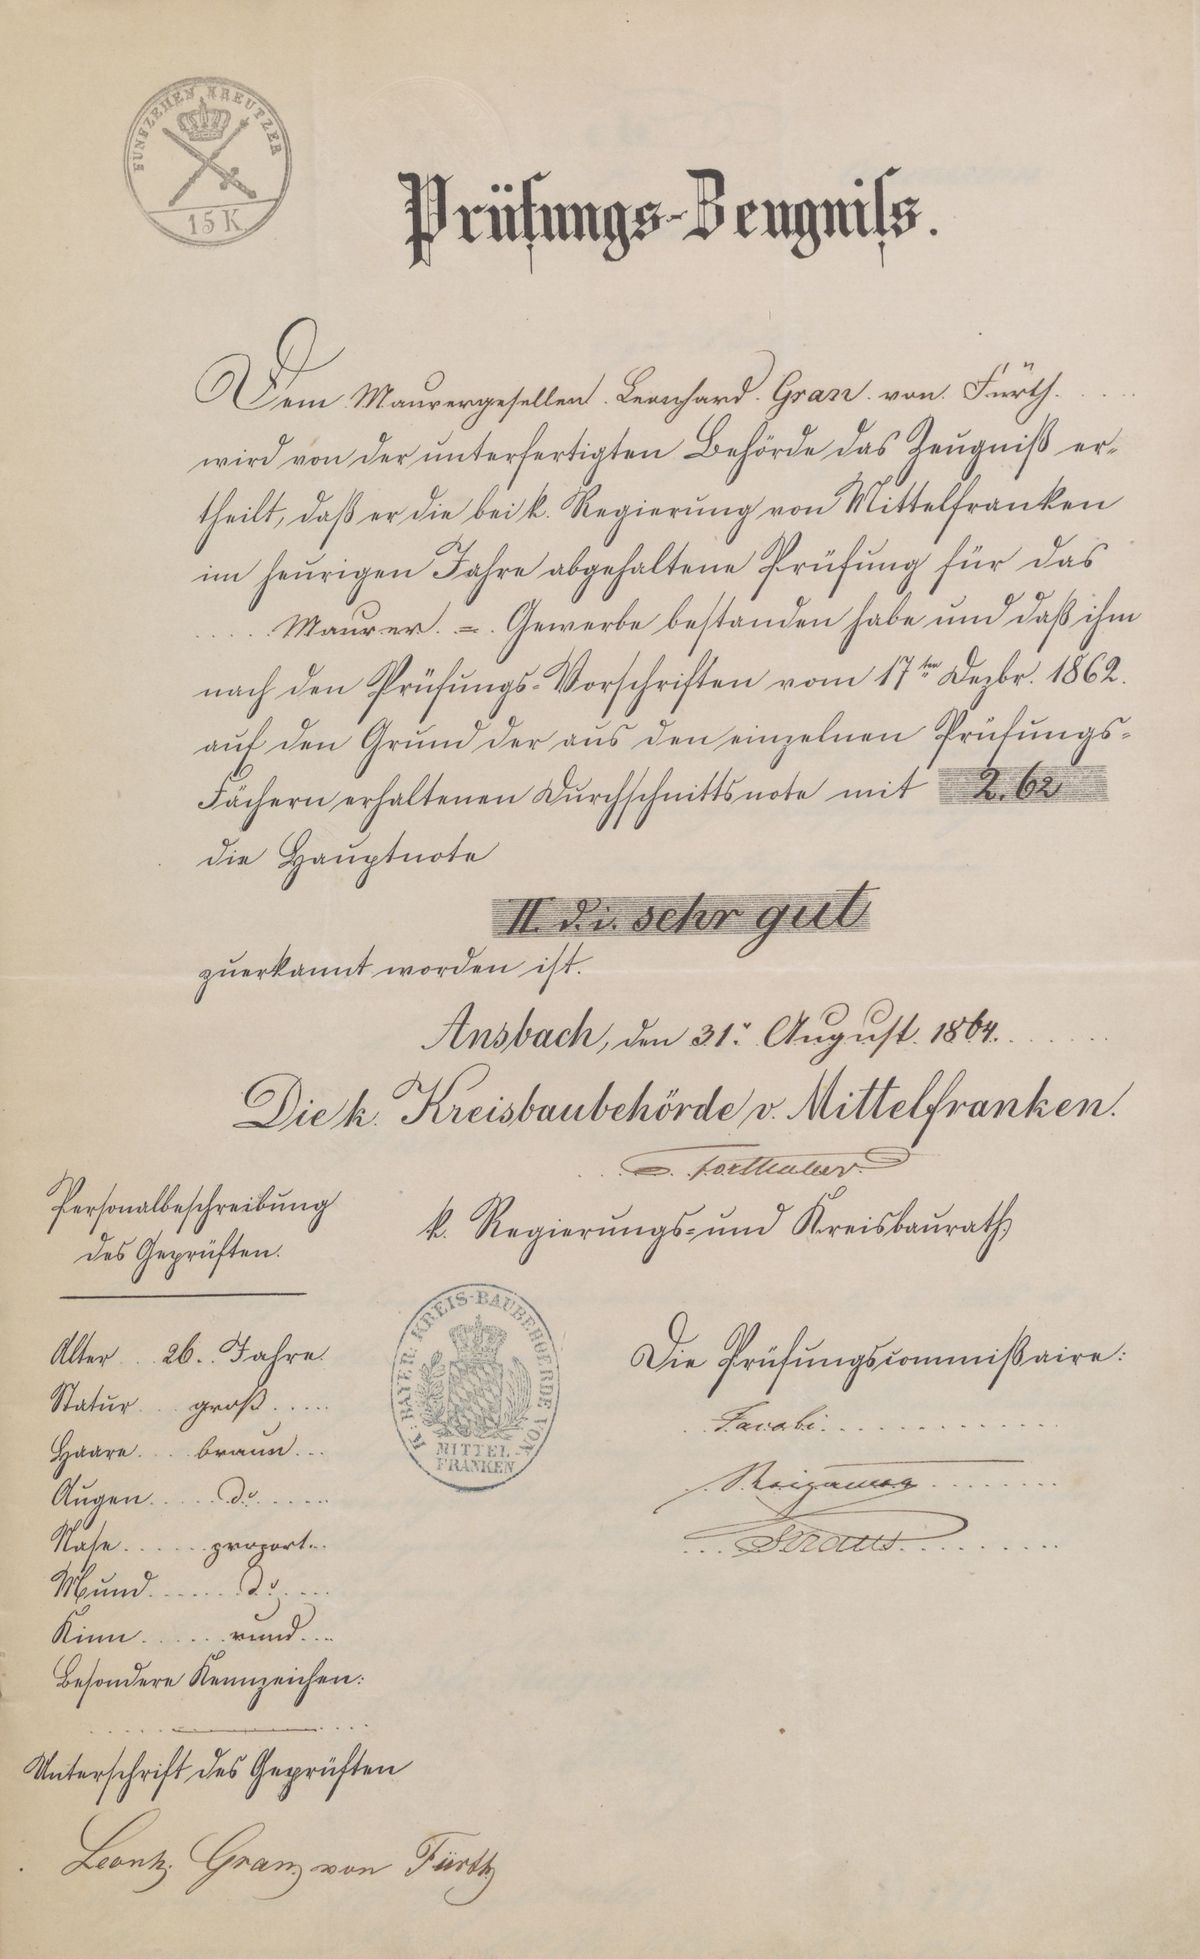 FÜNFZEHEN KREUTZER
15 K
Prüfungs-Zeugniſs.
Dem Maurergesellen Leonhard Gran von Fürth.
wird von der unterfertigten Behörde das Zeugniß er-
theilt, daß er die bei k. Regierung von Mittelfranken
im heurigen Jahre abgehaltene Prüfung für das
Maurer = Gewerbe bestanden habe und daß ihm
nach den Prüfungs-Vorschriften vom 17ten Dezbr. 1862.
auf den Grund der aus den einzelnen Prüfungs-
Fächern erhaltenen Durchschnittsnote mit 2.62
die Hauptnote
II. d. i. sehr gut
zuerkannt worden ist.
Ansbach, den 31. August 1864.
Die k. Kreisbaubehörde v. Mittelfranken.
k. Regierungs- und Kreisbaurath
Personalbeschreibung
des Geprüften.
Alter 26. Jahre
Statur groß
Haare braun
Augen do
Nase proport.
Mund do
Kinn rund
Besondere Kennzeichen:
Unterschrift des Geprüften
Leonh. Gran von Fürth
K. BAYER. KREIS-BAUBEHOERDE VON
MITTEL-
FRANKEN
Die Prüfungscommißaire:
Jacobi
Straus